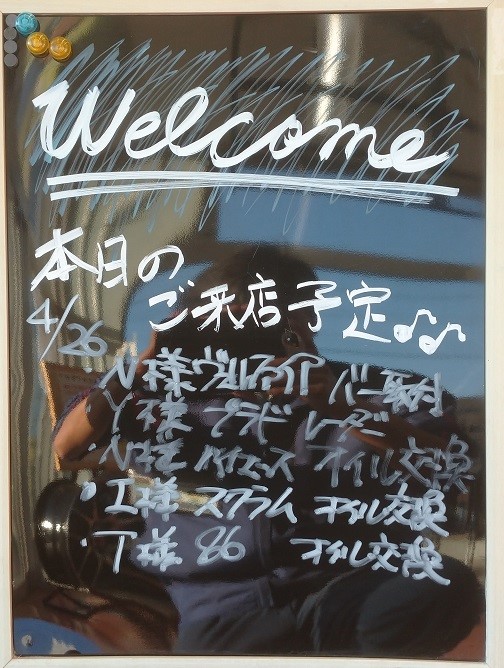 Welcome
本日の
ご来店予定♪♪
4/26
・N様 ヴェルファイア バー取付
・Y様 プラド レーダー
・N様 ハイエース オイル交換
・I様 スクラム オイル交換
・T様 86 オイル交換